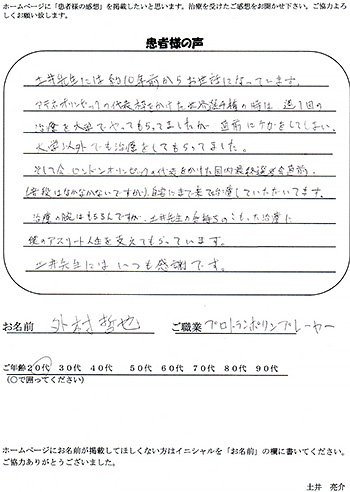 ホームページに「患者様の感想」を掲載したいと思います。治療を受けたご感想をお聞かせ下さい。ご協力よろ
しくお願い致します。
患者様の声
土井先生には約10年前からお世話になっています。
アテネオリンピックの代表権をかけた世界選手権の時は、週1回の
治療を大学でやってもらってましたが直前にケガをしてしまい、
大学以外でも治療をしてもらってました。
そして今、ロンドンオリンピックの代表をかけた国内最終選考会直前。
(普段はなかなかないですが)自宅にまで来て治療していただいてます。
治療の腕はもちろんですが、土井先生の気持ちのこもった治療に
僕のアスリート人生を支えてもらっています。
土井先生にはいつも感謝です。
お名前 外村哲也 ご職業 プロトランポリンプレーヤー
ご年齢 20代 30代 40代 50代 60代 70代 80代 90代
(○で囲ってください)
ホームページにお名前が掲載してほしくない方はイニシャルを「お名前」の欄に書いてください。
ご協力ありがとうございました。
土井 亮介